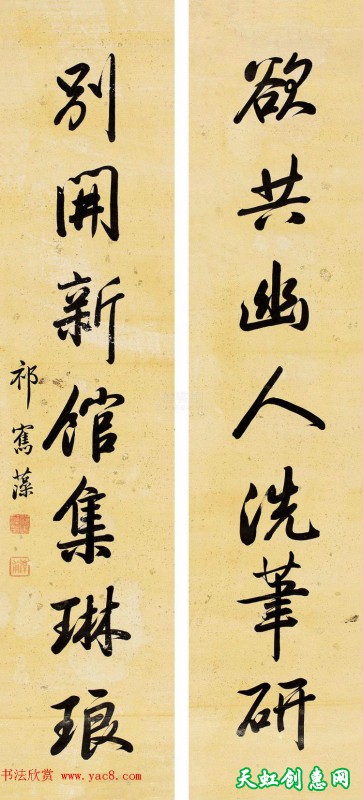 欲共幽人洗筆研
別開新館集琳琅
祁寯藻
书法欣赏
www.yac8.com
天虹创惠网